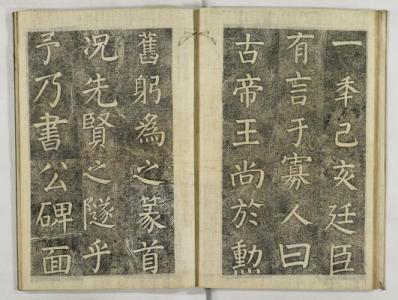 一年己亥廷臣
有言于寡人曰
古帝王尚於勳
舊躬為之篆首
況先賢之隧乎
予乃書公碑面